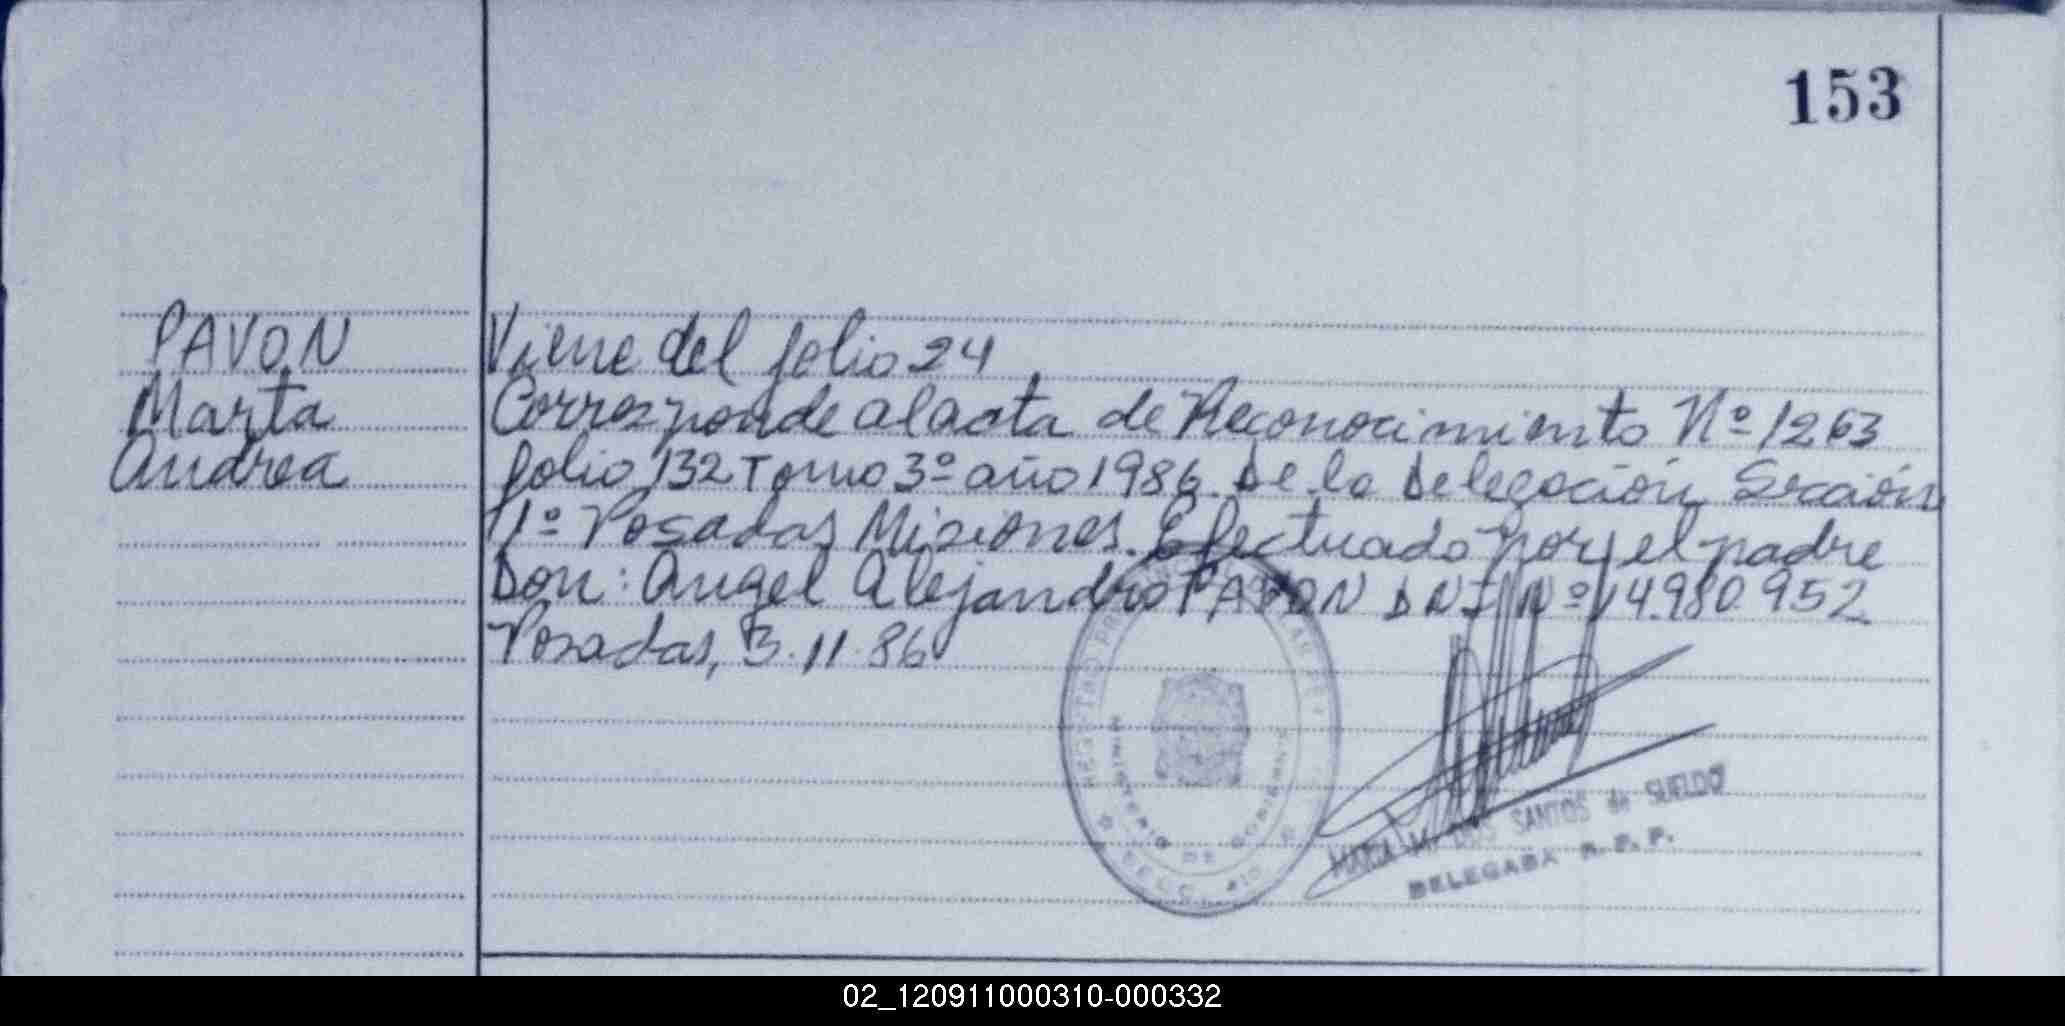 153
PAVON
Marta
Andrea
Viene del folio 24
Corresponde al acta de Reconocimiento Nº 1263
folio 132 Tomo 3º año 1986. De la Delegación Sección
1º Posadas Misiones. Efectuado por el padre
Don: Angel Alejandro PAVON DNI Nº 14.980.952
Posadas, 3.11.86
MINISTERIO DE GOBIERNO
MARIA M. DOS SANTOS de SUELDO
DELEGADA R. P. P.
02_120911000310-000332